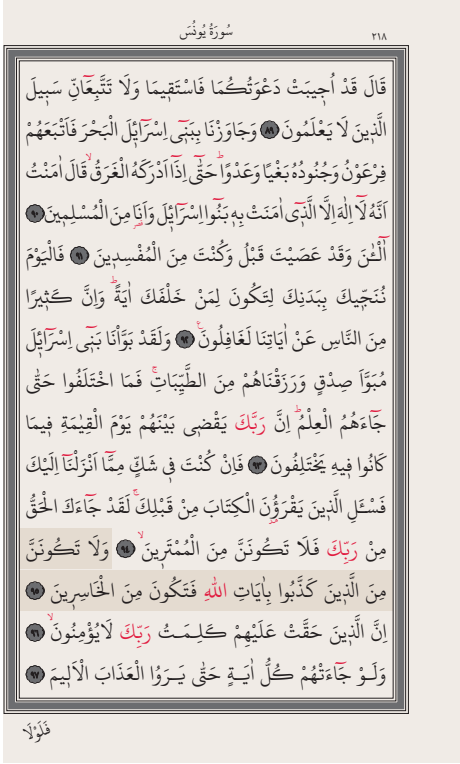 سُورَةُ يُونُسَ
٢١٨
قَالَ قَدْ اُج۪يبَتْ دَعْوَتُكُمَا فَاسْتَق۪يمَا وَلَا تَتَّبِعَٓانِّ سَب۪يلَ
الَّذ۪ينَ لَا يَعْلَمُونَ ﴿٨٩﴾ وَجَاوَزْنَا بِبَن۪ٓي اِسْرَٓائ۪لَ الْبَحْرَ فَاَتْبَعَهُمْ
فِرْعَوْنُ وَجُنُودُهُ بَغْيًا وَعَدْوًاۜ حَتّٰٓى اِذَٓا اَدْرَكَهُ الْغَرَقُۙ قَالَ اٰمَنْتُ
اَنَّهُ لَٓا اِلٰهَ اِلَّا الَّذ۪ٓي اٰمَنَتْ بِه۪ بَنُٓوا اِسْرَٓائ۪لَ وَاَنَا مِنَ الْمُسْلِم۪ينَ ﴿٩٠﴾
آٰلْـٰٔنَ وَقَدْ عَصَيْتَ قَبْلُ وَكُنْتَ مِنَ الْمُفْسِد۪ينَ ﴿٩١﴾ فَالْيَوْمَ
نُنَجّ۪يكَ بِبَدَنِكَ لِتَكُونَ لِمَنْ خَلْفَكَ اٰيَةًۜ وَاِنَّ كَث۪يرًا
مِنَ النَّاسِ عَنْ اٰيَاتِنَا لَغَافِلُونَ۟ ﴿٩٢﴾ وَلَقَدْ بَوَّأْنَا بَن۪ٓي اِسْرَٓائ۪لَ
مُبَوَّاَ صِدْقٍ وَرَزَقْنَاهُمْ مِنَ الطَّيِّبَاتِۚ فَمَا اخْتَلَفُوا حَتّٰى
جَٓاءَهُمُ الْعِلْمُۜ اِنَّ رَبَّكَ يَقْض۪ي بَيْنَهُمْ يَوْمَ الْقِيٰمَةِ ف۪يمَا
كَانُوا ف۪يهِ يَخْتَلِفُونَ ﴿٩٣﴾ فَاِنْ كُنْتَ ف۪ي شَكٍّ مِمَّٓا اَنْزَلْنَٓا اِلَيْكَ
فَسْـَٔلِ الَّذ۪ينَ يَقْرَؤُ۫نَ الْكِتَابَ مِنْ قَبْلِكَۚ لَقَدْ جَٓاءَكَ الْحَقُّ
مِنْ رَبِّكَ فَلَا تَكُونَنَّ مِنَ الْمُمْتَر۪ينَۙ ﴿٩٤﴾ وَلَا تَكُونَنَّ
مِنَ الَّذ۪ينَ كَذَّبُوا بِاٰيَاتِ اللّٰهِ فَتَكُونَ مِنَ الْخَاسِر۪ينَ ﴿٩٥﴾
اِنَّ الَّذ۪ينَ حَقَّتْ عَلَيْهِمْ كَلِمَتُ رَبِّكَ لَا يُؤْمِنُونَۙ ﴿٩٦﴾
وَلَوْ جَٓاءَتْهُمْ كُلُّ اٰيَةٍ حَتّٰى يَرَوُا الْعَذَابَ الْاَل۪يمَ ﴿٩٧﴾
فَلَوْلَا